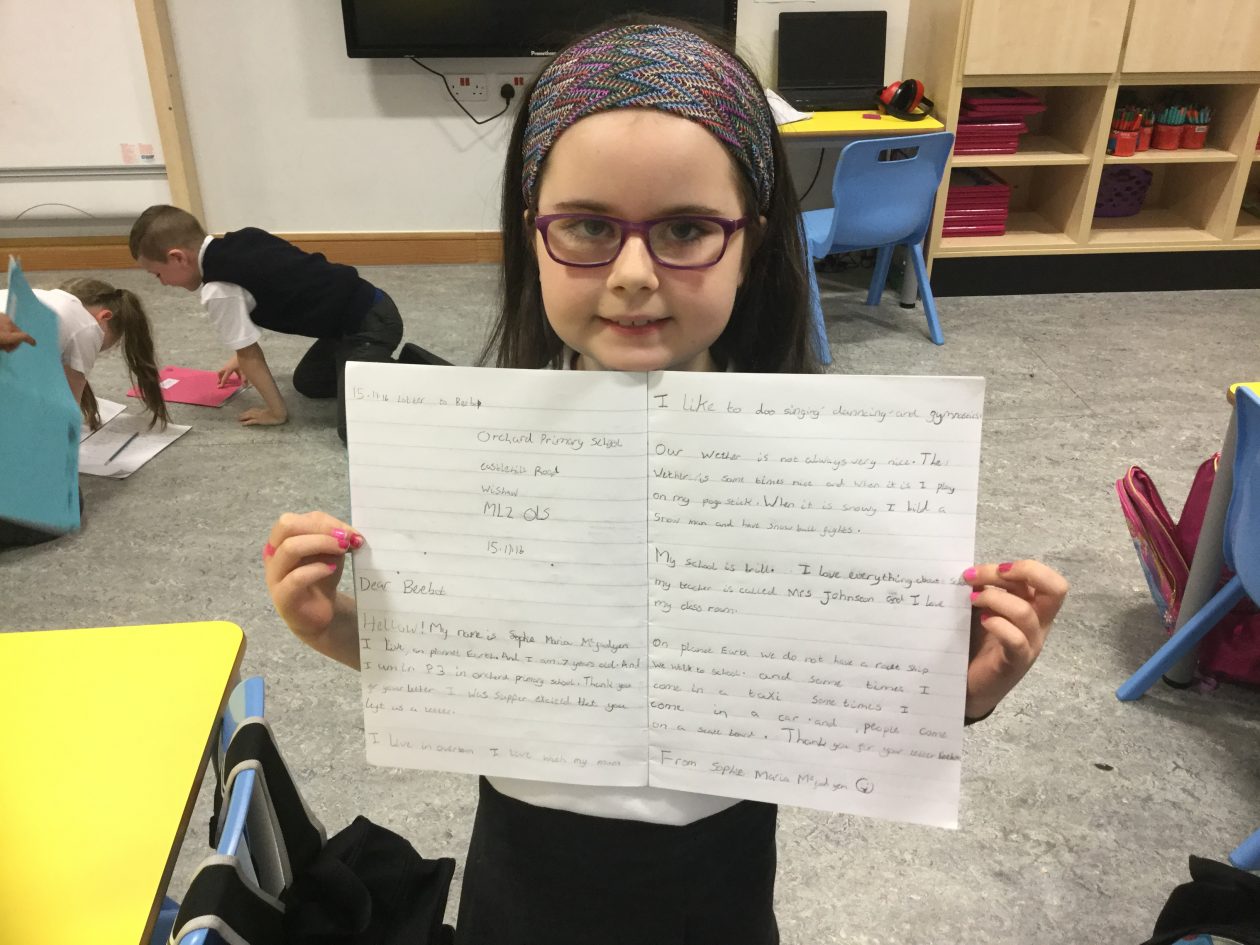 Promethean
15.11.16 Letter to Beebot
Orchard Primary School
Castlehill Road
Wishaw
ML2 OLS
15.11.16
Dear Beebot
Hellow! My name is Sophie Maria
I Live, on planet Earth. And I am 7 years old. And
I um in P3 in orchard primary school. Thank you
for your letter I was supper that you
left us a letter.
I Live in overtown I Live with my mum
I Like to doo singing dancing and
Our wether is not always very nice. The
wether is some times nice and when it is I play
on my pogo stick. When it is snowy I bild a
Snow man and have snow ball fights.
My school is brill. I love everything about
my teacher is called Mrs Johnson and I love
my class room.
On planet Earth we do not have a roket ship
We walk to school. and some times I
come in a taxi some times I
come in a car. and people come
on a scate board. Thank you for your letter
From Sophie Maria